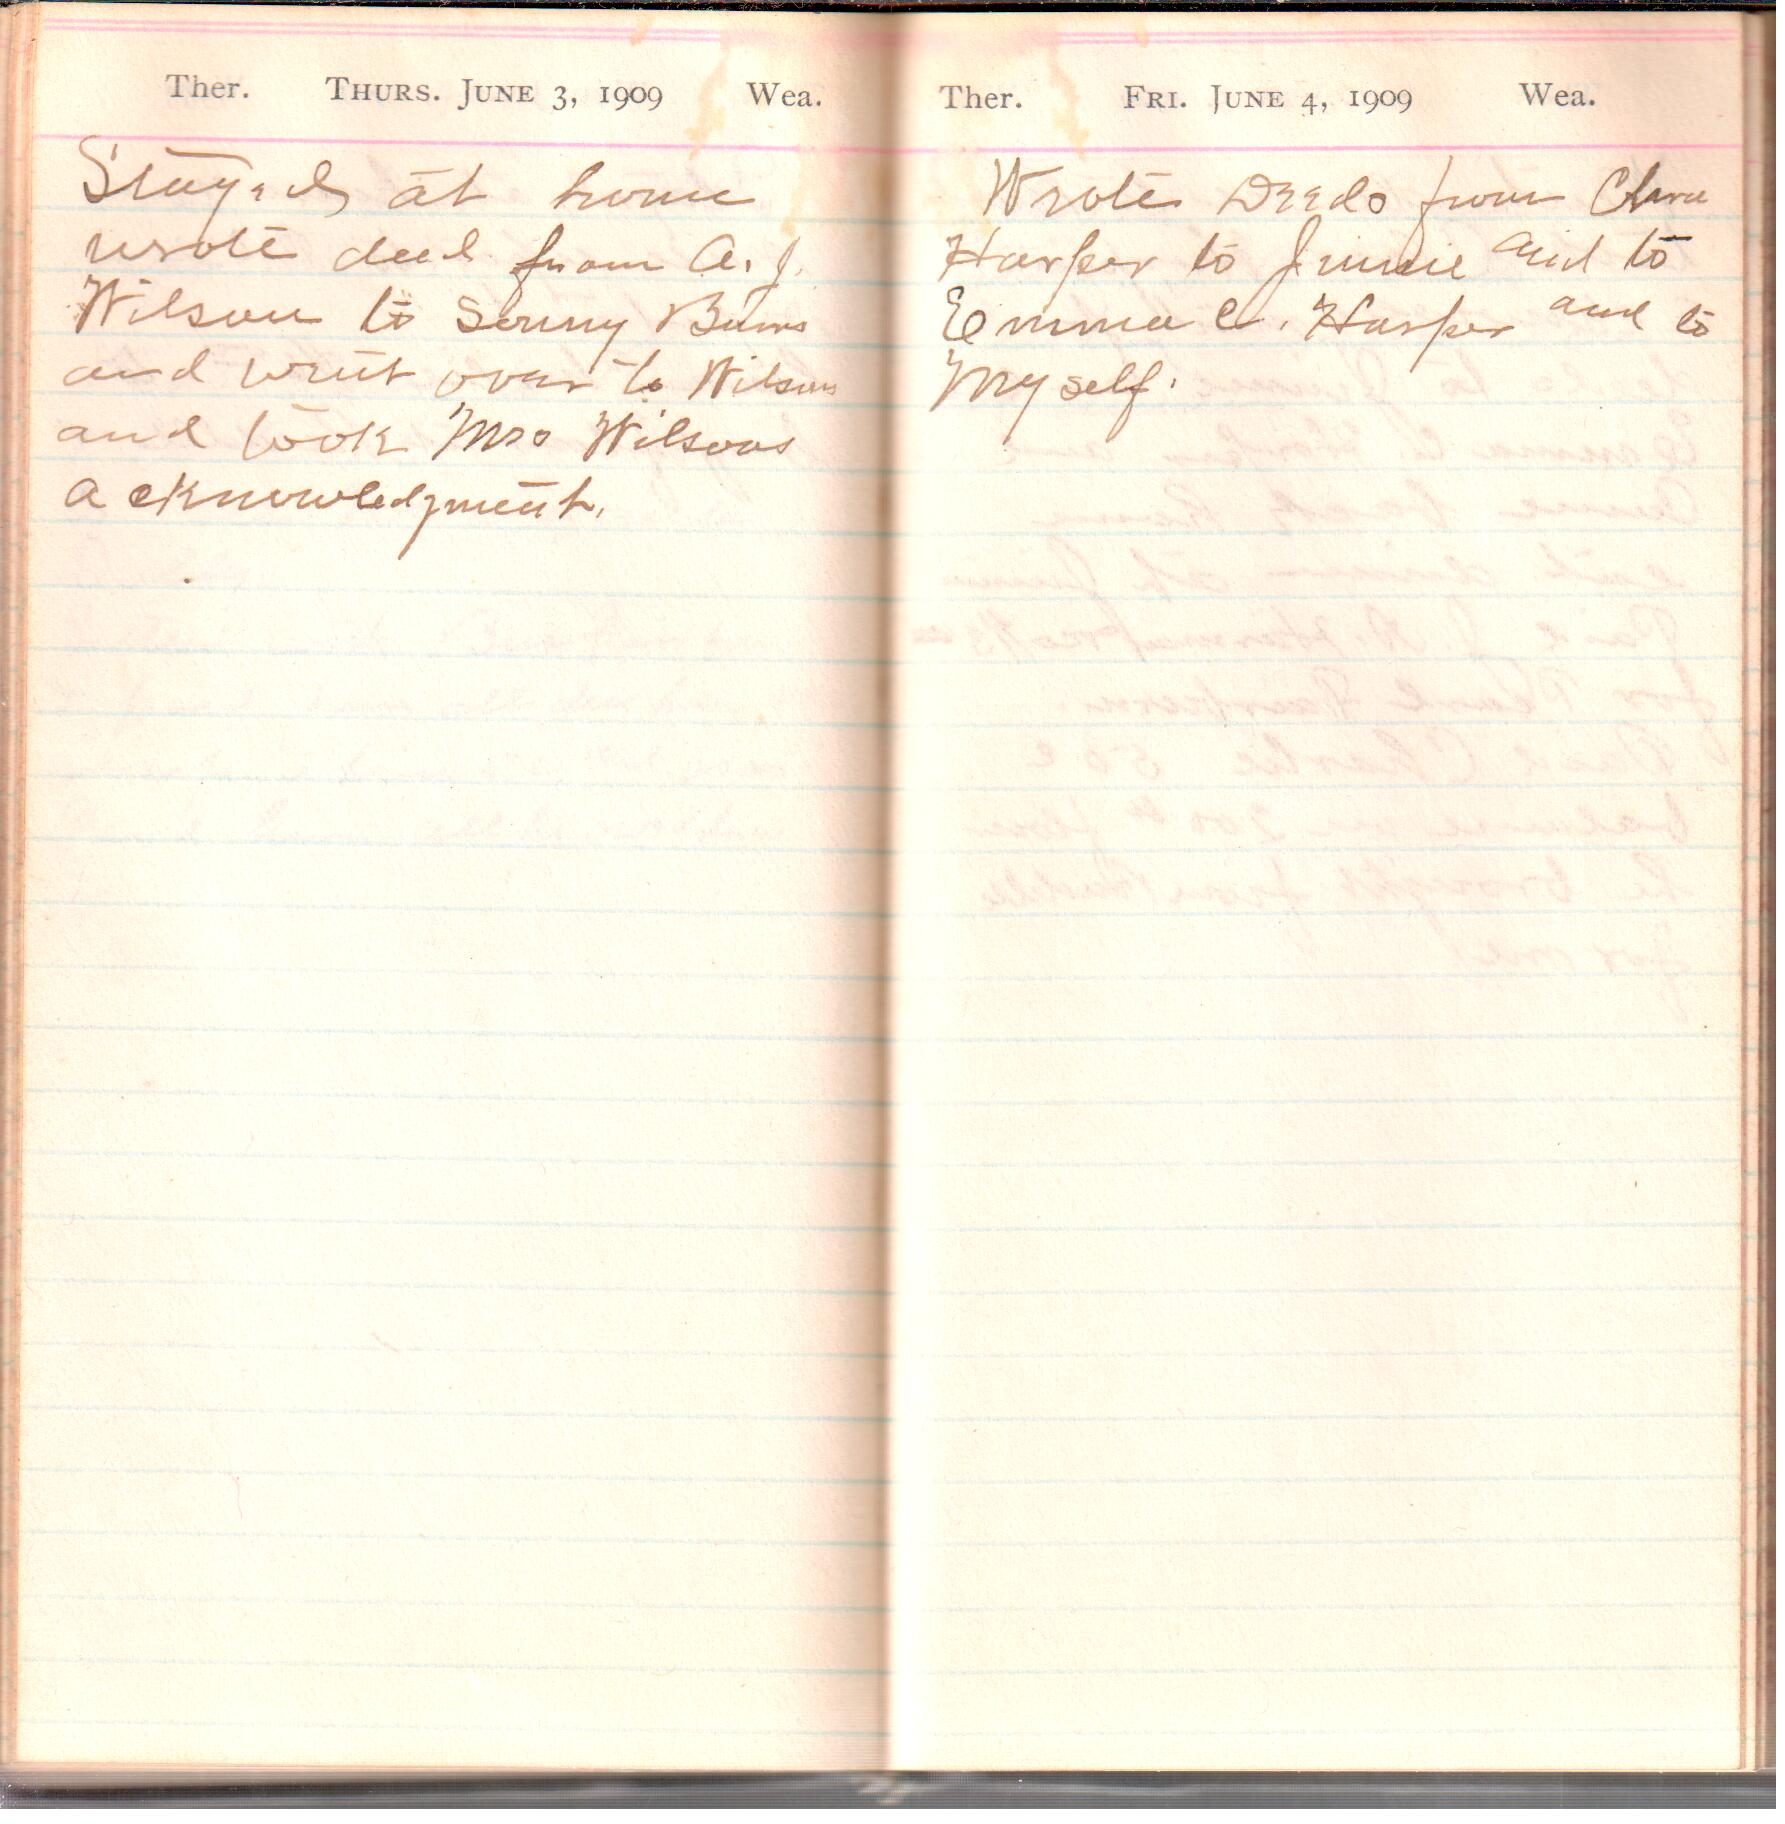 Ther. THURS. JUNE 3, 1909 Wea.
Stayed at home
wrote deed from A. J.
Wilson to Sonny Burns
and went over to Wilsons
and took Mrs Wilsons
acknowledgment.
Ther. FRI. JUNE 4, 1909 Wea.
Wrote Deeds from Clara
Harper to Jinnie and to
Emma C. Harper and to
Myself.